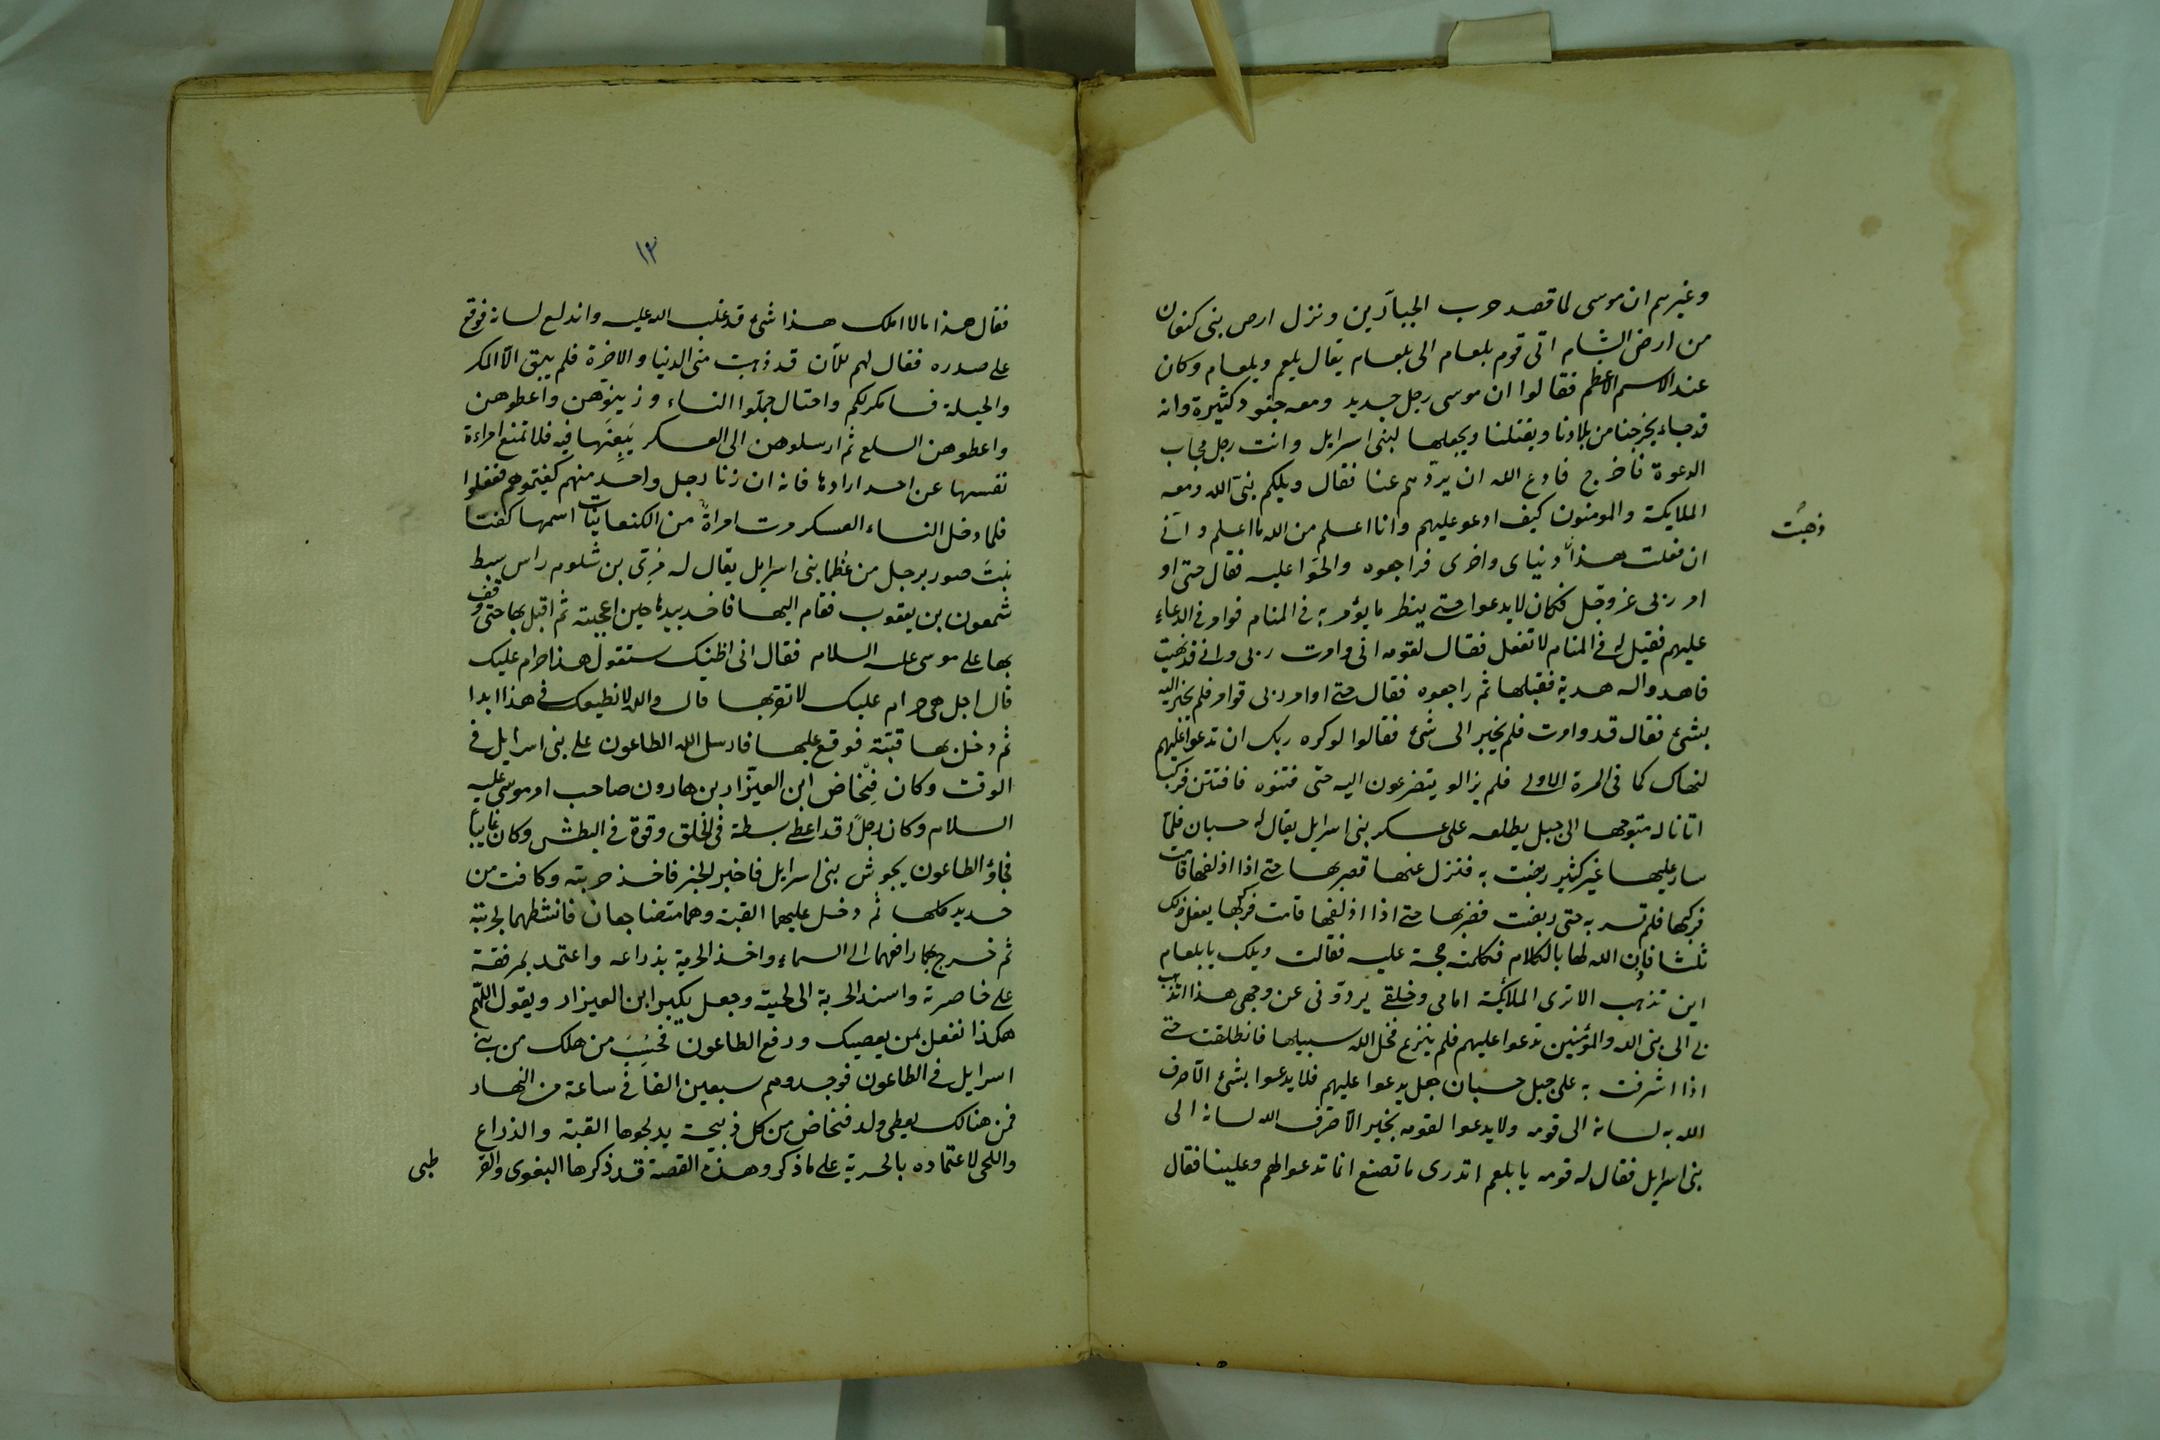 وغيرهم ان موسى لما قصد حرب الجبارين ونزل ارض بنى كنعان
من ارض الشام اتى قوم بلعام الى بلعام يقال بلعم وبلعام وكان
عند الاسم الاعظم فقالوا ان موسى رجل حديد ومعه جنود كثيرة وانه
قد جاء يخرجنا من بلادنا ويقتلنا ويجعلها لبنى اسرايل وانت رجل مجاب
الدعوة فاخرج فادع الله ان يردهم عنا فقال ويلكم نبى الله ومعه
الملايكة والمومنون كيف ادعو عليهم وانا اعلم من الله ما اعلم وانى
ذهبت
ان فعلت هذا دنياى واخرى فراجعوه والحوا عليه فقال حتى او
امر ربى عز وجل فكان لا يدعوا حتى ينظر ما يؤمر به فى المنام فوامر فى الدعاء
عليهم فقيل له فى المنام لا تفعل فقال لقومه انى وامرت ربى وانى قد نهيت
فاهدوا له هدية فقبلها ثم راجعوه فقال حتى اوامر ربى فوامر فلم يخبر اليه
بشئ فقال قد وامرت فلم يخبر الى شئ فقالوا لو كره ربك ان تدعوا عليهم
لنهاك كما فى المرة الاولى فلم يزالو يتضرعون اليه حتى فتنوه فافتتن فركب
اتانا له متوجها الى جبل يطلعه على عسكر بنى اسرايل يقال له حسبان فلما
سار عليها غير كثير ربضت به فنزل عنها فضربها حتى اذا اذلقها قامت
فركبها فلم تسر به حتى ربضت فضربها حتى اذا اذلقها قامت فركبها يفعل ذلك
ثلثا فاذن الله لها بالكلام فكلمته حجة عليه فقالت ويلك يا بلعام
اين تذهب الا ترى الملائكة امامى وخلفى يردونى عن وجهى هذا اتذهب
بى الى نبى الله والمؤمنين تدعوا عليهم فلم ينزع فخلى الله سبيلها فانطلقت حتى
اذا اشرفت به على جبل حسبان جعل يدعوا عليهم فلا يدعوا بشئ الا صرف
الله به لسانه الى قومه ولا يدعوا لقومه بخير الا صرف الله لسانه الى
بنى اسرايل فقال له قومه يا بلعم اتدرى ما تصنع انما تدعوا لهم وعلينا فقال
١٢
فقال هذا ما لا املك هذا شئ قد غلب الله عليه واندلع لسانه فوقع
على صدره فقال لهم الآن قد ذهبت منى الدنيا والاخرة فلم يبق الا المكر
والحيلة فسامكر لكم واحتال جملوا النساء وزينوهن واعطوهن
واعطوهن السلع ثم ارسلوهن الى العسكر يبعنها فيه فلا تمنع امراءة
نفسها عن احد ارادها فانه ان زنا رجل واحد منهم كفيتموهم ففعلوا
فلما دخل النساء العسكر مرت امراة من الكنعانيات اسمها كفتا
بنت صور برجل من عظما بنى اسرايل يقال له زمرى بن شلوم راس سبط
شمعون بن يعقوب فقام اليها فاخذ بيدها حين اعجبته ثم اقبل بها حتى وقف
بها على موسى عليه السلام فقال انى اظنك ستقول هذا حرام عليك
قال اجل هى حرام عليك لا تقربها قال والله لا نطيعك فى هذا ابدا
ثم دخل بها قبته فوقع عليها فارسل الله الطاعون على بنى اسرايل فى
الوقت وكان فنخاص ابن العيزار بن هارون صاحب امر موسى عليه
السلام وكان رجلا قد اعطى بسطة فى الخلق وقوة فى البطش وكان غايبا
فجاؤ الطاعون يجوش بنى اسرايل فاخبر الخبر فاخذ حربته وكانت من
حديد كلها ثم دخل عليهما القبة وهما متضاجعان فانتظمهما بحربته
ثم خرج بهما رافعهما الى السماء واخذ الحربة بذراعه واعتمد بمرفقه
على خاصرته واسند الحربة الى لحيته وجعل يكبر ابن العيزار ويقول اللهم
هكذا نفعل بمن يعصيك ورفع الطاعون فحسب من هلك من بنى
اسرايل فى الطاعون فوجدوهم سبعين الفا فى ساعة من النهار
فمن هنالك يعطى ولد فنخاص من كل ذبيحة يذبحوها القبة والذراع
واللحى لاعتماده بالحربة على ما ذكر وهذه القصة قد ذكرها البغوى والقر
طبى